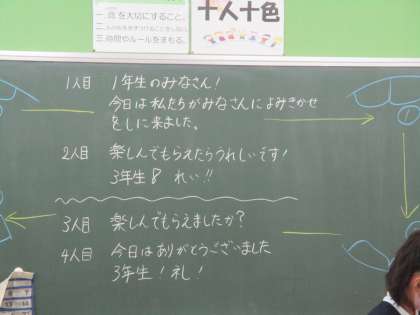 一.命を大切にすること。
三.時間やルールをまもる。
十人十色
1人目 1年生のみなさん!
今日は私たちがみなさんによみきかせ
をしに来ました。
2人目 楽しんでもらえたらうれしいです!
3年生 れい!!
3人目 楽しんでもらえましたか?
4人目 今日はありがとうございました
3年生!礼!
①